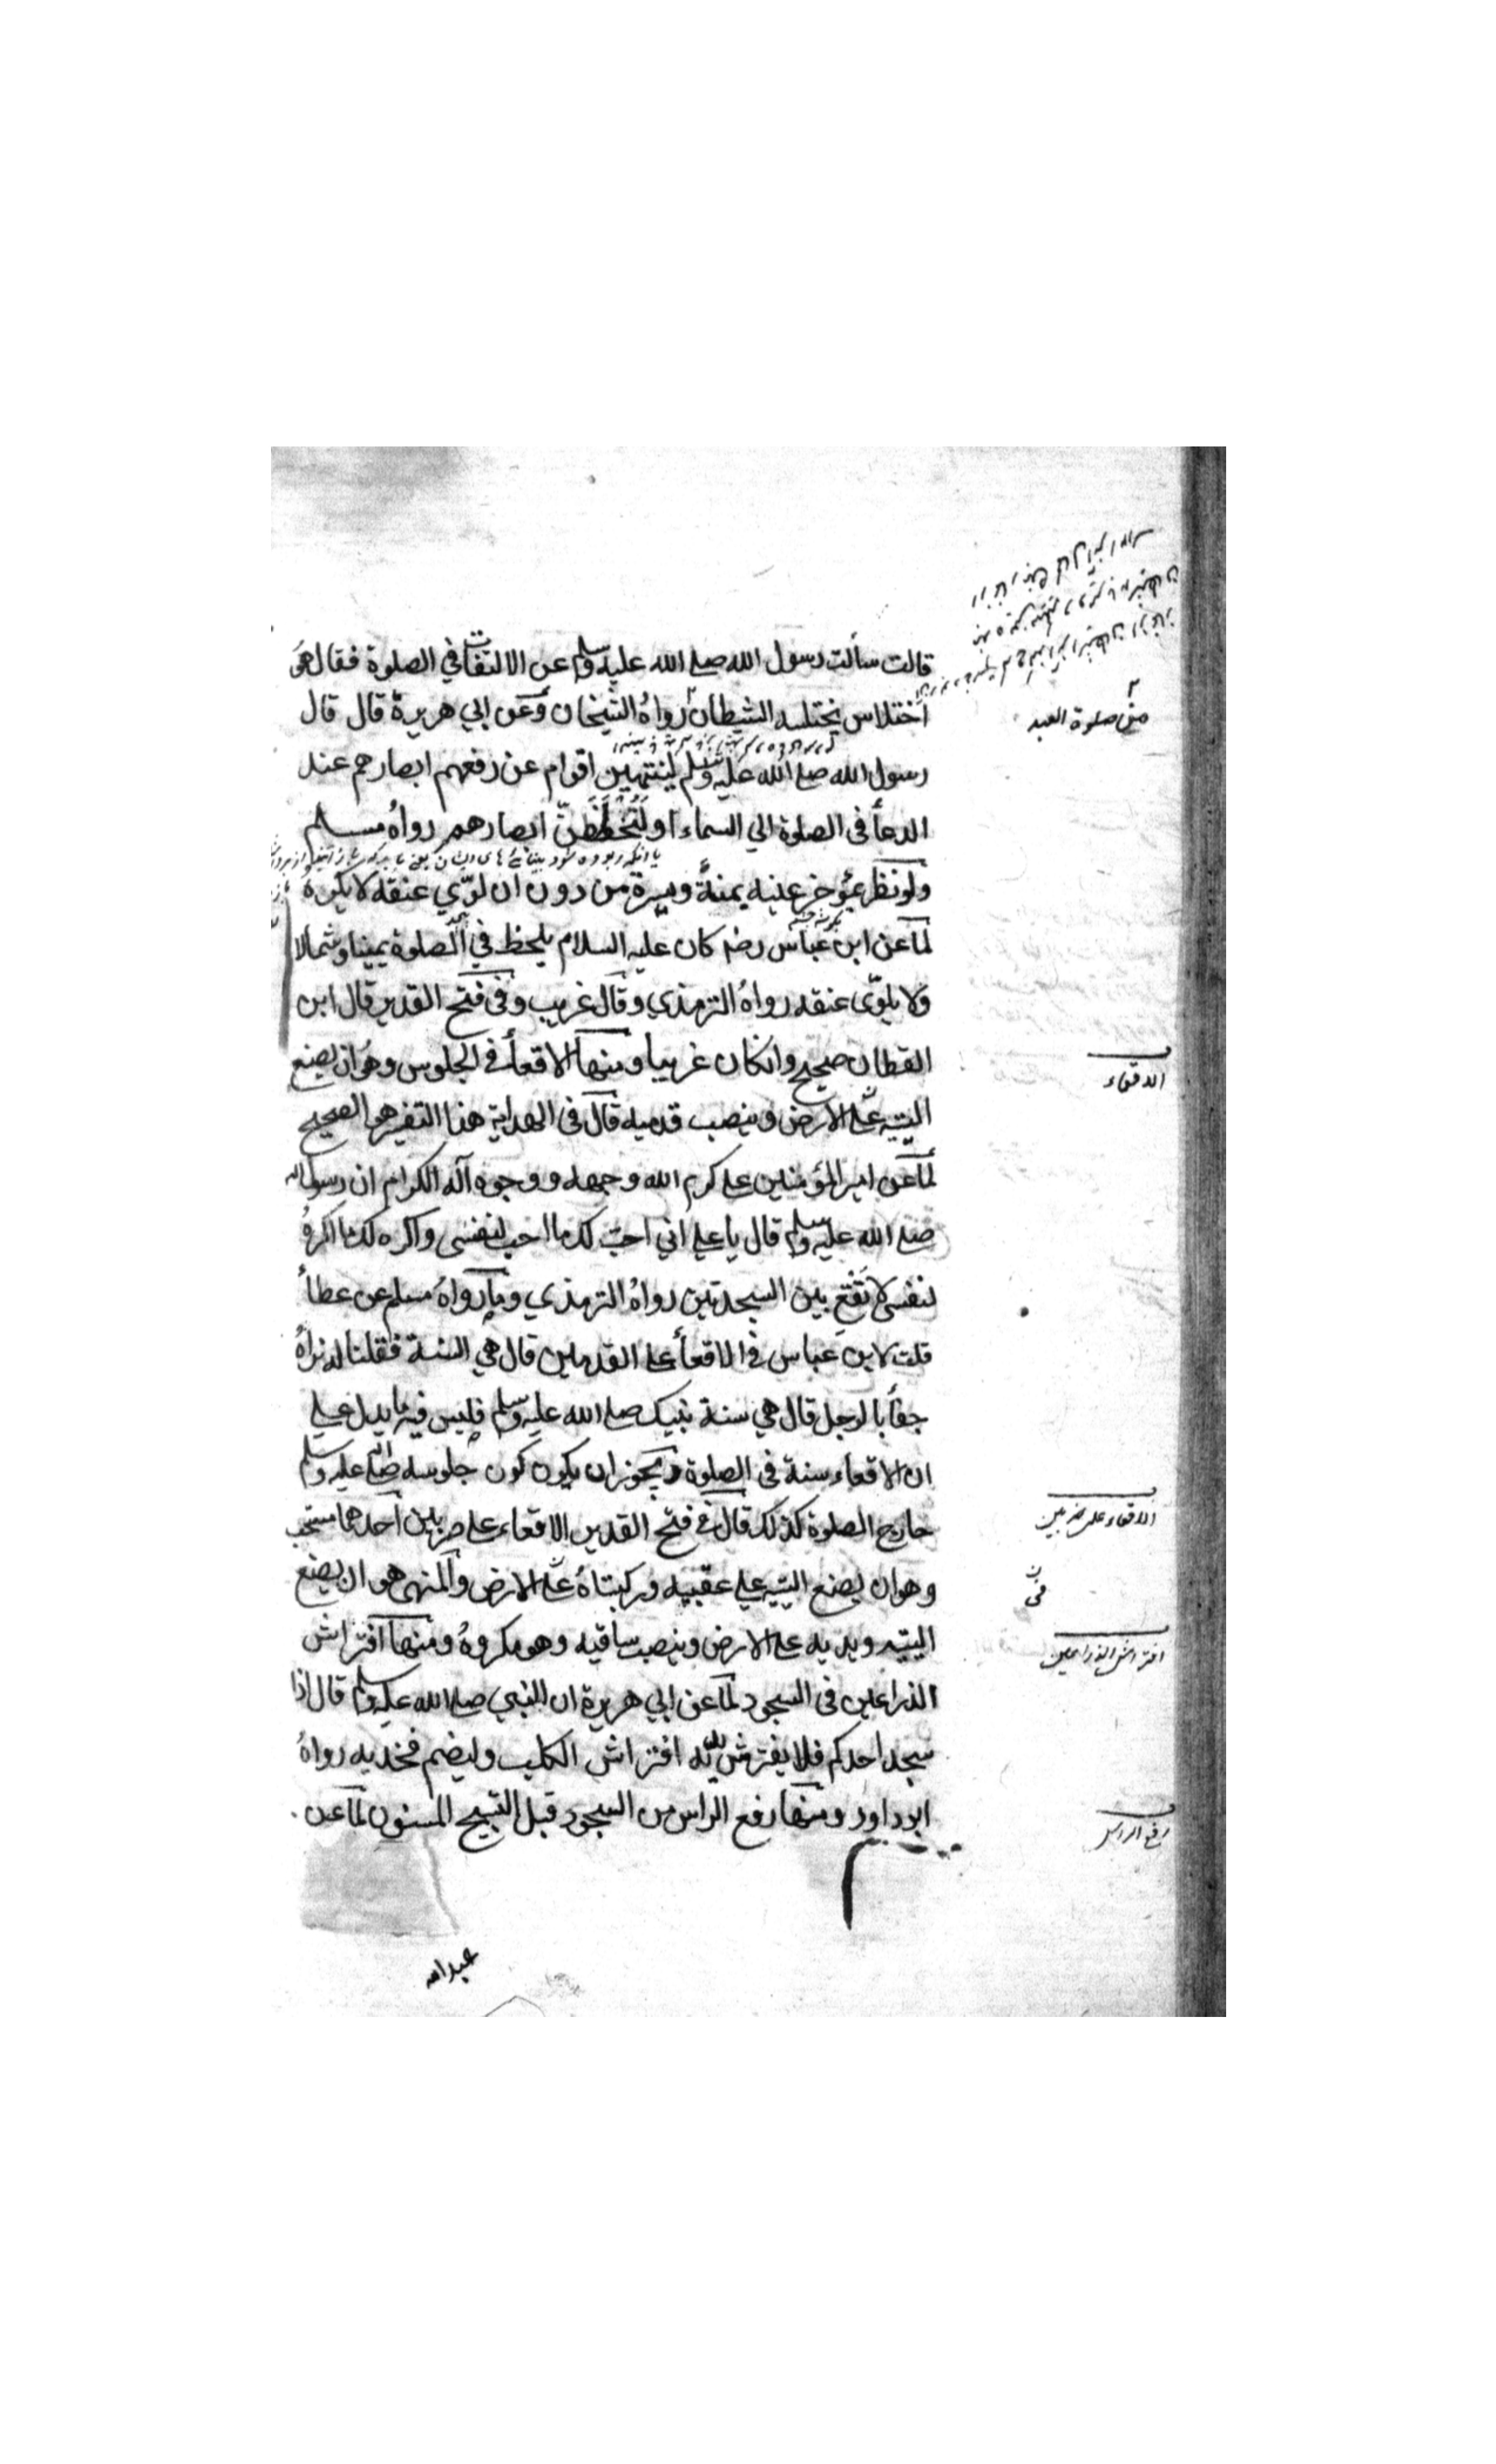 قالت سألت رسول الله صلى الله عليه وسلم عن الالتفات في الصلوة فقال هو
اختلاس يختلسه الشيطان رواه الشيخان وعن ابي هريرة قال قال
من صلوة العبد
رسول الله صلى الله عليه وسلم لينتهين اقوام عن رفعهم ابصارهم عند
الدعأ في الصلوة الي السماء او لتخطفن ابصارهم رواه مسلم
ولو نظر بمؤخر عينه يمنة ويسرة من دون ان لوّي عنقه لا يكره
لما عن ابن عباس رضـ كان عليه السلام يلحظ في الصلوة يمينا وشمالا
ولا يلوّى عنقه رواه الترمذي وقال غريب وفي فتح القدير قال ابن
القطان صحيح وانكان غريبا ومنها الاقعأ في الجلوس وهو ان يضع
الاقعاء
اليتيه على الارض وينصب قدميه قال في الهداية هذا التفسير هو الصحيح
لما عن امير المؤمنين على كرم الله وجهه ووجوه آله الكرام ان رسول الله
صلى الله عليه وسلم قال يا علي اني احبّ لك ما احب لنفسى واكره لك ما اكره
لنفسى لا تقع بين السجدتين رواه الترمذي وما رواه مسلم عن عطأ
قلت لابن عباس في الاقعأ على القدمين قال هي السنة فقلنا له نراه
جفأ بالرجل قال هي سنة نبيك صلى الله عليه وسلم فليس فيه ما يدل علي
ان الاقعاء سنة في الصلوة ويجوز ان يكون كون جلوسه صلى الله عليه وسلم
خارج الصلوة كذلك قال في فتح القدير الاقعاء على ضربين احدهما مستحب
الاقعاء على ضربين
وهو ان يضع اليتيه علي عقبيه وركبتاه على الارض والمنهى هو ان يضع
فى
اليتيه ويديه على الارض وينصب ساقيه وهو مكروه ومنها افتراش
افتراش الذراعين
الذراعين في السجود لما عن ابي هريرة ان النبي صلى الله عليه وسلم قال اذا
سجد احدكم فلا يفترش يديه افتراش الكلب وليضم فخذيه رواه
ابو داود ومنها رفع الراس من السجود قبل التسبيح المسنون لما عن
رفع الراس
عبد الله